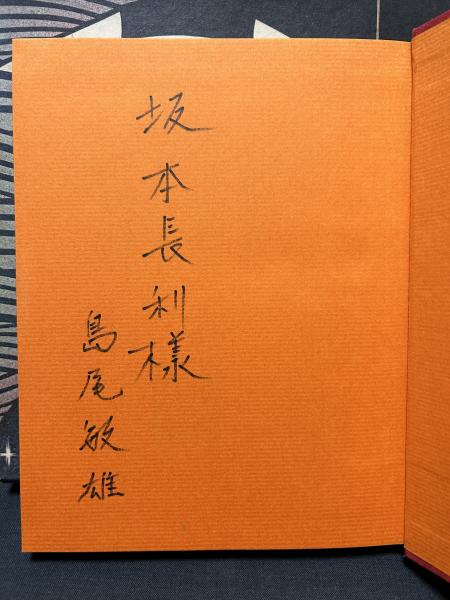 坂本長利様
島尾敏雄